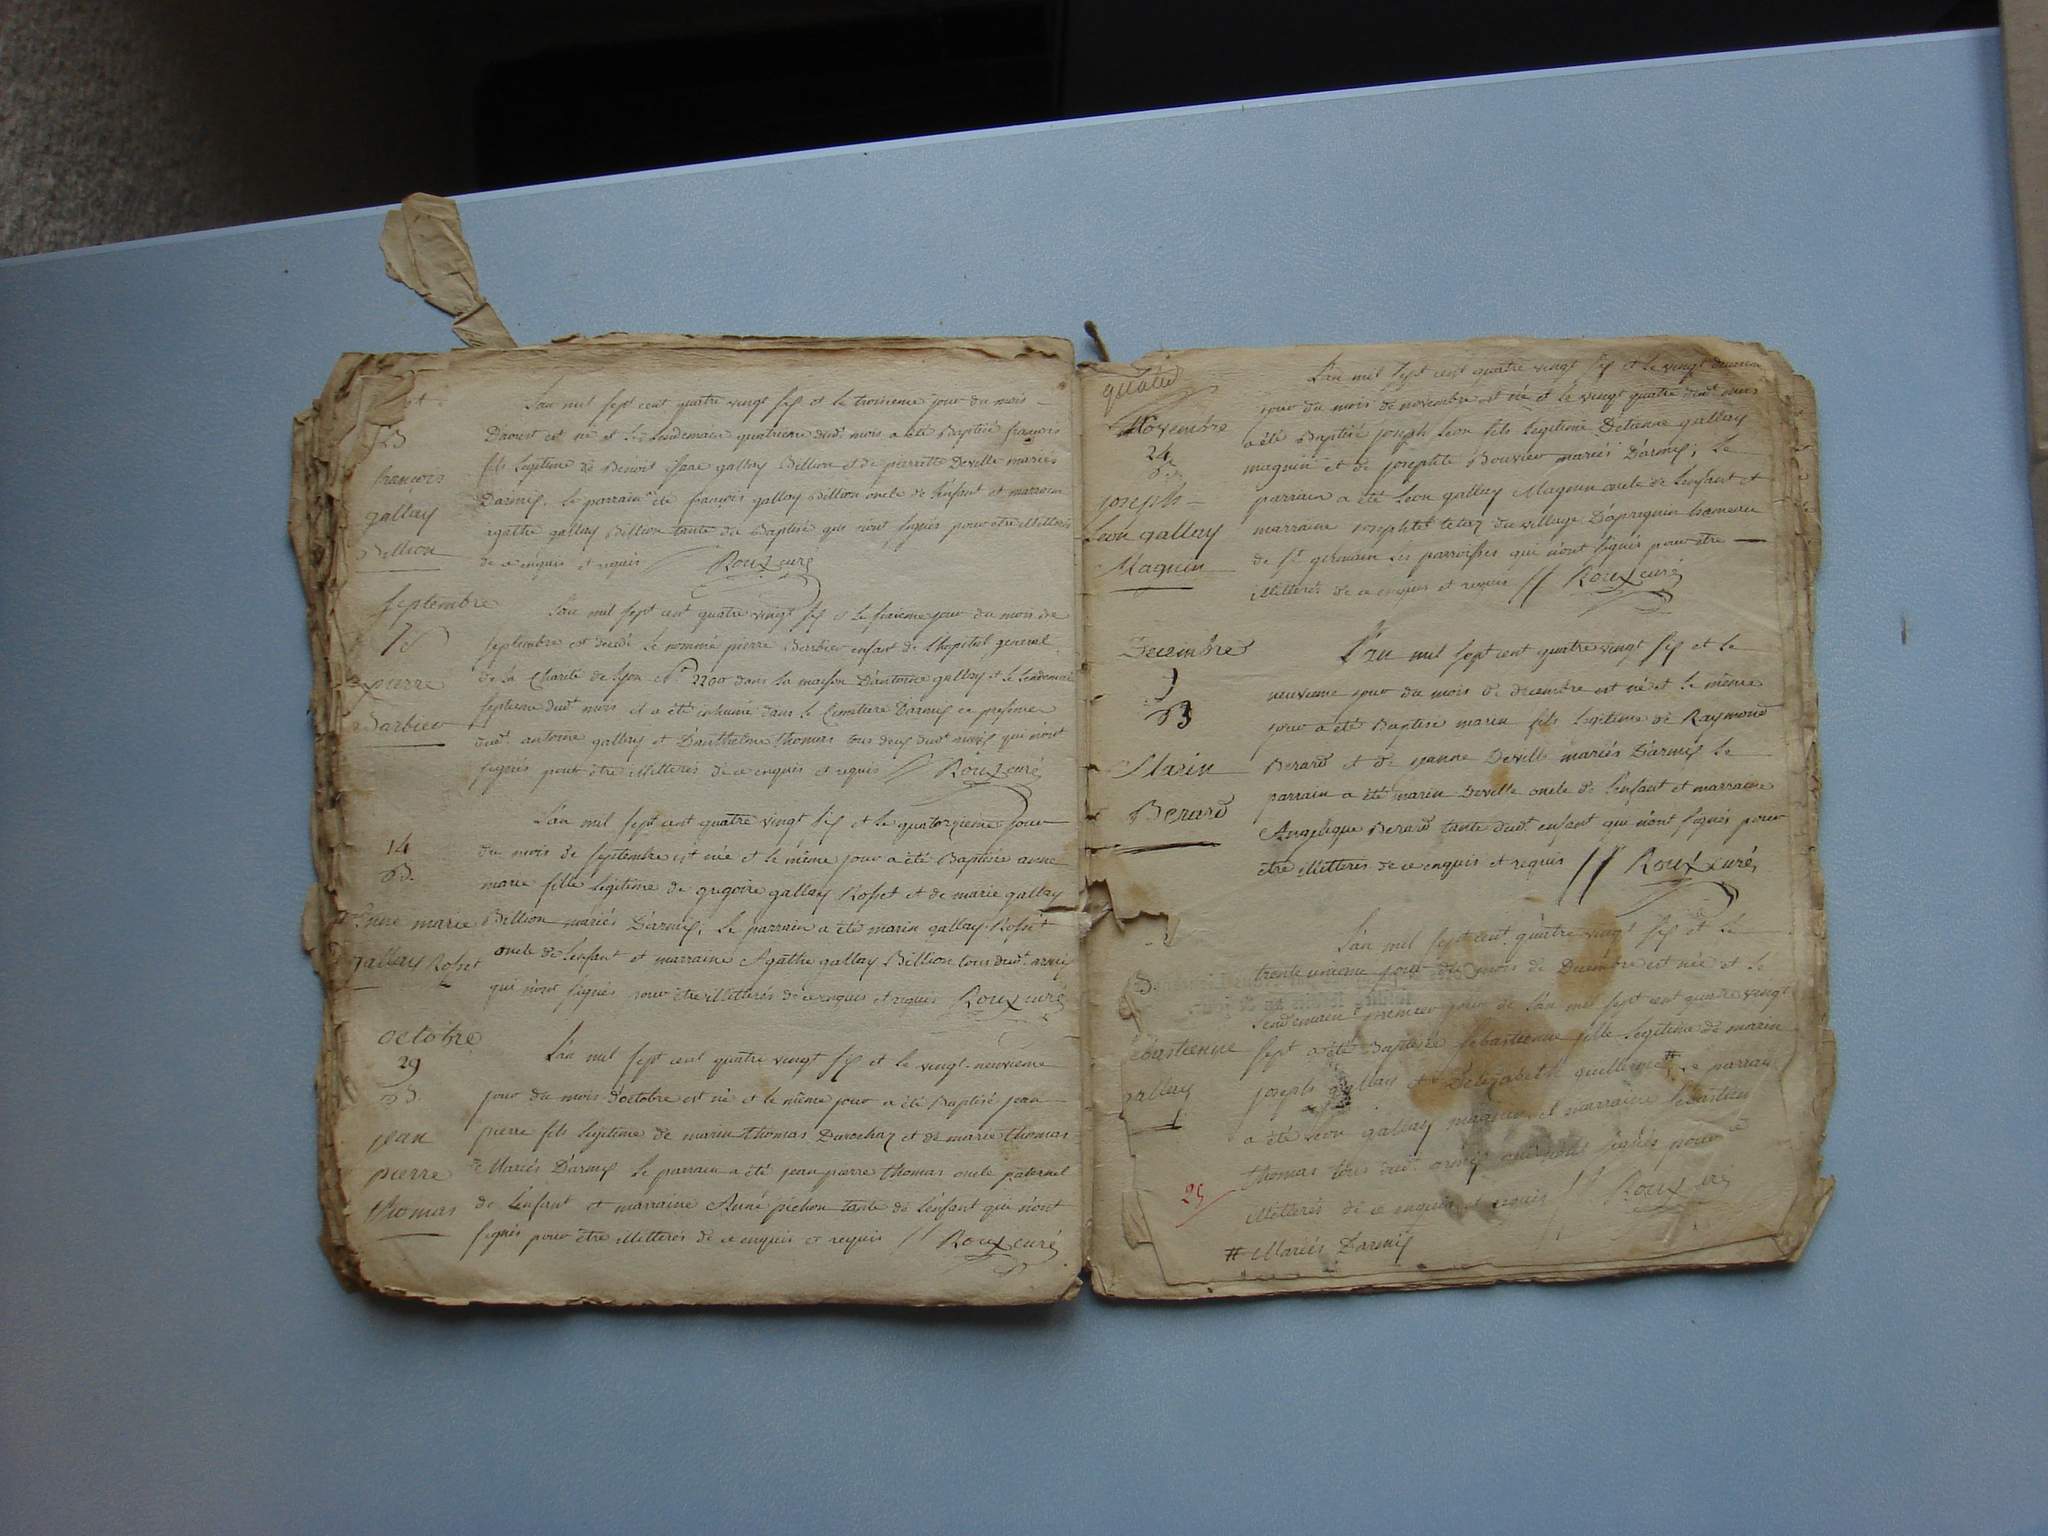 B
françois
gallay
Billion
L'an mil sept cent quatre vingt six et le troisieme jour du mois
D'aoust est né et le lendemain quatrieme dudt mois a été Baptisé françois
fils legitime de Benoit gallay Billion et de pierrette Deville mariés
D'armix. le parrain a été françois gallay Billion oncle de l'enfant et marraine
agathe gallay Billion tante du Baptisé qui n'ont signés pour être illitterés
de ce enquis et requis Roux curé
septembre
7
pierre
Barbier
L'an mil sept cent quatre vingt six et le sixieme jour du mois de
septembre est decedé le nommé pierre Barbier enfant de l'hopital general
de la Charité de lyon No 2200 dans la maison D'antoine gallay et le lendemain
septieme dudt mois et a été inhumé dans le Cimetiere D'armix en presence
dudt antoine gallay et D'anthelme thomas tous deux dudt armix qui n'ont
signés pour être illitterés de ce enquis et requis // Roux curé
14
B.
Anne marie
gallay Rosset
L'an mil sept cent quatre vingt six et le quatorzieme jour
du mois de septembre est née et le même jour a été Baptisée anne
marie fille legitime de gregoire gallay Rosset et de marie gallay
Billion mariés D'armix, le parrain a été marin gallay Rosset
oncle de l'enfant et marraine Agathe gallay Billion tous dudt armix
qui n'ont signés pour être illitterés de ce enquis et requis Roux curé
octobre
29
B.
jean
pierre
Thomas
L'an mil sept cent quatre vingt six et le vingt-neuvieme
jour du mois d'octobre est né et le même jour a été Baptisé jean
pierre fils legitime de marin thomas Durochaz et de marie thomas
Mariés D'armix le parrain a été jean pierre thomas oncle paternel
de l'enfant et marraine Anné pichon tante de l'enfant qui n'ont
signés pour être illitterés de ce enquis et requis // Roux curé
Novembre
24
B.
joseph
Leon gallay
Magnin
L'an mil sept cent quatre vingt six et le vingt
jour du mois de novembre est né et le vingt quatre dudt mois
a été Baptisé joseph Leon fils legitime D'etienne gallay
magnin et de josephte Bouvier mariés D'armix, le
parrain a été Leon gallay Magnin oncle de l'enfant et
marraine du village hameau
de st germain les parroisses qui n'ont signés pour être
illitterés de ce enquis et requis // Roux curé
Decembre
9
B
Marin
Berard
L'an mil sept cent quatre vingt six et le
neuvieme jour du mois de decembre est né et le même
jour a été Baptisé marin fils legitime de Raymond
Berard et de jeanne Deville mariés D'armix le
parrain a été marin Deville oncle de l'enfant et marraine
Angelique Berard tante dudt enfant qui n'ont signés pour
être illitterés de ce enquis et requis // Roux curé
B.
sebastienne
gallay
L'an mil sept cent quatre vingt six et le
trente unieme jour du mois de Decembre est née et le
lendemain premier jour de l'an mil sept cent quatre vingt
sept a été Baptisée sebastienne fille legitime de marin
joseph gallay et D'elizabeth guillermet # Le parrain
a été Leon gallay magnin et marraine sebastien
thomas tous dudt armix qui n'ont signés pour
illitterés de ce enquis et requis // Roux curé
25
# Mariés D'armix